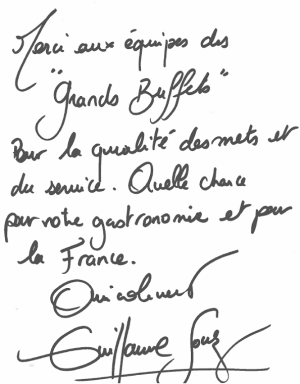 Merci aux équipes des
"Grands Buffets"
Pour la qualité des mets et
du service. Quelle chance
pour notre gastronomie et pour
la France.
Amicalement
Guillaume Gomez